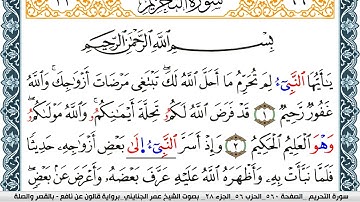 سورة التحريم
بِسْمِ اللَّهِ الرَّحْمَٰنِ الرَّحِيمِ
يَٰأَيُّهَا النَّبِىٓءُ لِمَ تُحَرِّمُ مَا أَحَلَّ اللَّهُ لَكَ تَبْتَغِى مَرْضَاتَ أَزْوَٰجِكَ وَاللَّهُ
غَفُورٌ رَّحِيمٌ ١ قَدْ فَرَضَ اللَّهُ لَكُمْ تَحِلَّةَ أَيْمَٰنِكُمْ وَاللَّهُ مَوْلَىٰكُمْ
وَهْوَ الْعَلِيمُ الْحَكِيمُ ٢ وَإِذْ أَسَرَّ النَّبِىٓءُ إِلَىٰ بَعْضِ أَزْوَٰجِهِ حَدِيثًا
فَلَمَّا نَبَّأَتْ بِهِ وَأَظْهَرَهُ اللَّهُ عَلَيْهِ عَرَّفَ بَعْضَهُ وَأَعْرَضَ عَنْ بَعْضٍ
سورة التحريم - الصفحة ٥٦٠ - الحزب ٥٦ - الجزء ٢٨ - بصوت الشيخ عمر الجنايني - برواية قالون عن نافع - بالقصر والصلة